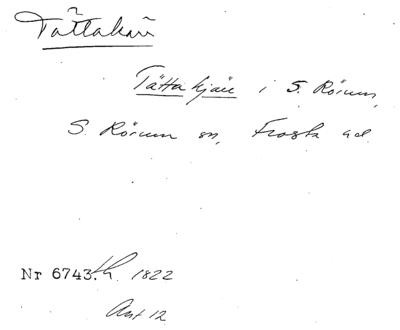 Tättakärr
Tätta kjärr i S. Rörum,
S. Rörum sn, Frosta hd.
Nr 6743. 1822
Akt 12